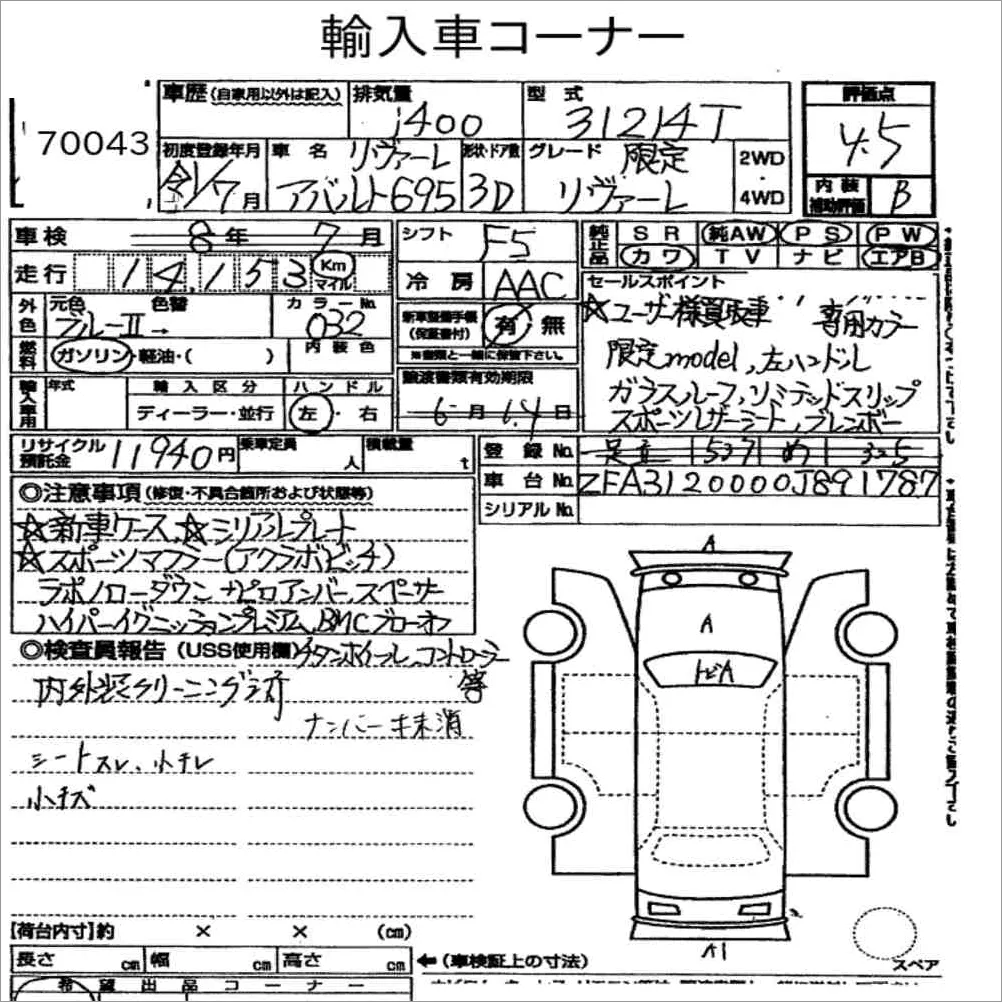 輸入車コーナー
70043
車歴 (自家用以外は記入)
排気量 1400
型式 31214T
評価点 4.5
初度登録年月 令1/7月
車名 リヴァーレ アバルト695
形状・ドア数 3D
グレード 限定 リヴァーレ
2WD・4WD
内装補助評価 B
車検 8年 7月
シフト F5
純正品 SR 純AW PS PW
カワ TV ナビ エアB
走行 14,153 Km マイル
冷房 AAC
セールスポイント
外色 元色 ブルーII→ 色替
カラーNo. 032
新車整備手帳(保証書付) 有・無
※書類と一緒に保管下さい。
☆ユーザー様買取車 専用カラー
限定model,左ハンドル
ガラスルーフ,リミテッドスリップ
スポーツレザーシート,ブレンボー
燃料 ガソリン・軽油・( )
内装色
輸入車用 年式
輸入区分 ディーラー・並行
ハンドル 左・右
譲渡書類有効期限
6月 14日
リサイクル預託金 11940円
乗車定員 人
積載量 t
登録No. 足立 537 め 325
車台No. ZFA3120000J891787
シリアルNo.
◎注意事項(修復・不具合箇所および状態等)
☆新車ケース,☆シリアルプレート
☆スポーツマフラー(アクラポビッチ)
ラポノローダウン ナピロアンバースペーサー
ハイパーイグニッションプレミアム,BMCブローオフ
◎検査員報告(USS使用欄)
チタンホイール,コントローラー等
内外装クリーニング済
ナンバーキ未消
シートスレ、小チレ
小キズ
A
A
トビA
A1
スペア
【荷台内寸】約 × × (cm)
長さ cm 幅 cm 高さ cm
←(車検証上の寸法)
希望出品コーナー